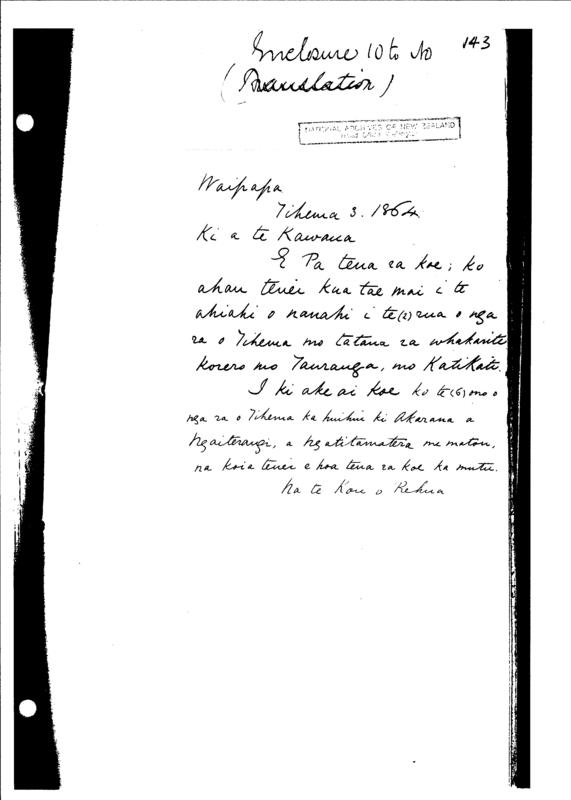 143
Enclosure 10 to No
(Translation)
NATIONAL ARCHIVES OF NEW ZEALAND
Waipapa
Tihema 3. 1864
Ki a te Kawana
E Pa tena ra koe; ko
ahau tenei kua tae mai i te
ahiahi o nanahi i te (2) rua o nga
ra o Tihema mo tatana ra whakarite
korero mo Tauranga, mo Katikati.
I ki ake ai koe ko te (6) mo o
nga ra o Tihema ka huihui ki Akarana a
Ngaiterangi, a Ngatitamatera me matou,
na koia tenei e hoa tena ra koe ka mutu.
Na te Kou o Rehua